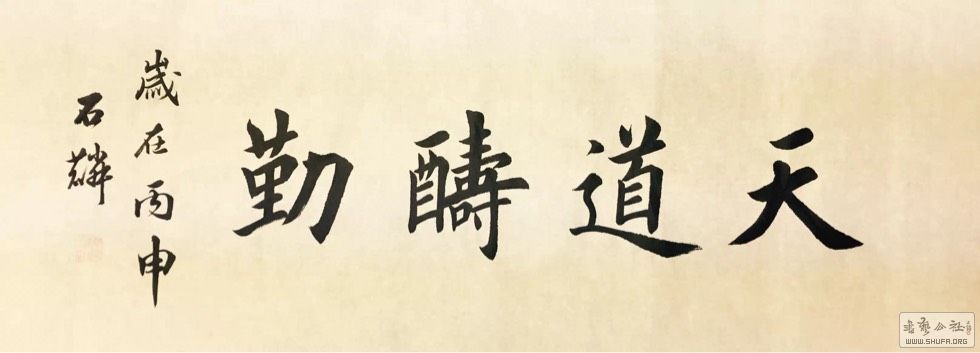 天道醻勤
歲在丙申
石麟
書藝公社
WWW.SHUFA.ORG